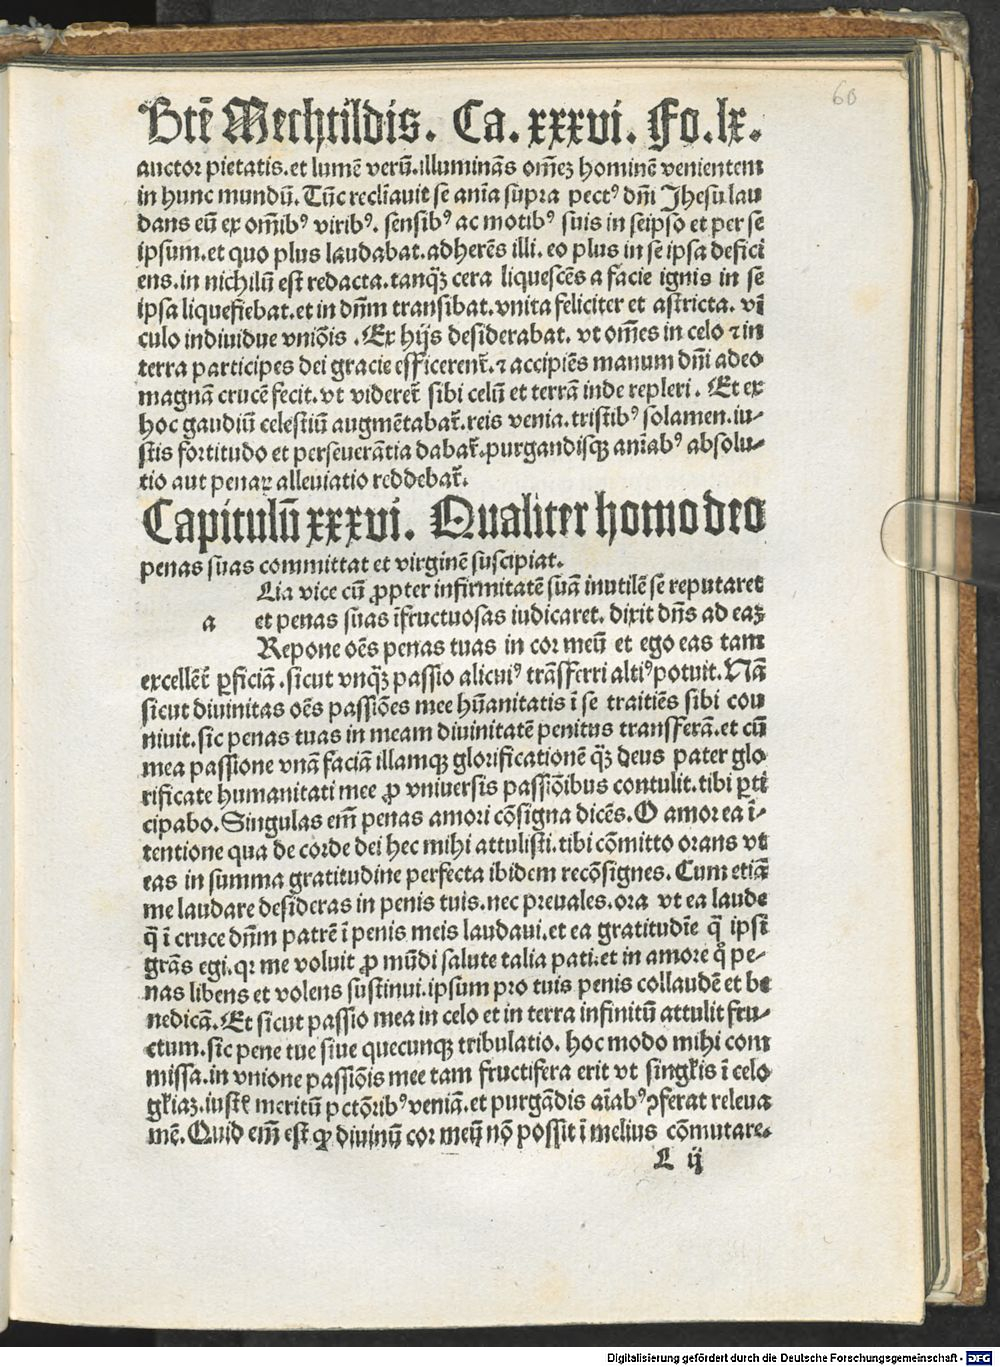 60
Btē Mechtildis. Ca. xxxvi. Fo. lx.
auctor pietatis. et lumē verū. illuminās om̄eꝫ hominē venientem
in hunc mundū. Tūc recliāuit se anīa sup̄ra pectꝰ dn̄i Jhesu lau
dans eū ex om̄ibꝰ viribꝰ. sensibꝰ ac motibꝰ suis in seipso et per se
ipsum. et quo plus laudabat. adherēs illi. eo plus in se ipsa defici
ens. in nichilū est redacta. tanq̄ꝫ cera liquescēs a facie ignis in se
ipsa liquefiebat. et in dn̄m transibat. vnita feliciter et astricta. vī
culo indiuidue vniōis. Ex hijs desiderabat. vt om̄es in celo ⁊ in
terra participes dei gracie efficerent̄. ⁊ accipiēs manum dn̄i adeo
magnā crucē fecit. vt videret̄ sibi celū et terrā inde repleri. Et ex
hoc gaudiū celestiū augmētabat̄. reis venia. tristibꝰ solamen. iu-
stis fortitudo et perseuerātia dabat̄. purgandisqꝫ anīabꝰ absolu-
tio aut penaꝝ alleuiatio reddebat̄.
Capitulū xxxvi. Qualiter homo deo
penas suas committat et virginē suscipiat.
Lia vice cū ꝓpter infirmitatē suā inutilē se reputaret
a et penas suas īfructuosas iudicaret. dixit dn̄s ad eaꝫ
Repone oēs penas tuas in cor meū et ego eas tam
excellēt̄ ꝑficiā. sicut vnq̄ꝫ passio alicuiꝰ trāsferri altiꝰ potuit. Nā
sicut diuinitas oēs passiōes mee hūanitatis ī se traitiēs sibi cou
niuit. sic penas tuas in meam diuinitatē penitus transferā. et cū
mea passione vnā faciā illamqꝫ glorificationē q̄ꝫ deus pater glo
rificate humanitati mee ꝓ vniuersis passiōibus contulit. tibi ꝑti
cipabo. Singulas em̄ penas amori cōsigna dicēs. O amor ea ī-
tentione qua de corde dei hec mihi attulisti. tibi cōmitto orans vt
eas in summa gratitudine perfecta ibidem recōsignes. Cum etiā
me laudare desideras in penis tuis. nec preuales. ora vt ea laude
q̄ ī cruce dn̄m patrē ī penis meis laudaui. et ea gratitudīe q̄ ipsi
grās egi. qꝛ me voluit ꝓ mūdi salute talia pati. et in amore qͦ pe-
nas libens et volens sustinui. ipsum pro tuis penis collaudē et be
nedicā. Et sicut passio mea in celo et in terra infinitū attulit fru-
ctum. sic pene tue siue quecunqꝫ tribulatio. hoc modo mihi com
missa. in vnione passiōis mee tam fructifera erit vt singl̄is ī celo
gl̄iaꝫ. iustꝭ meritū pctōribꝰ veniā. et purgādis aīabꝰ ꝯferat releua
mē. Quid em̄ est qꝫ diuinū cor meū nō possit ī melius cōmutare.
L ij
Digitalisierung gefördert durch die Deutsche Forschungsgemeinschaft - DFG